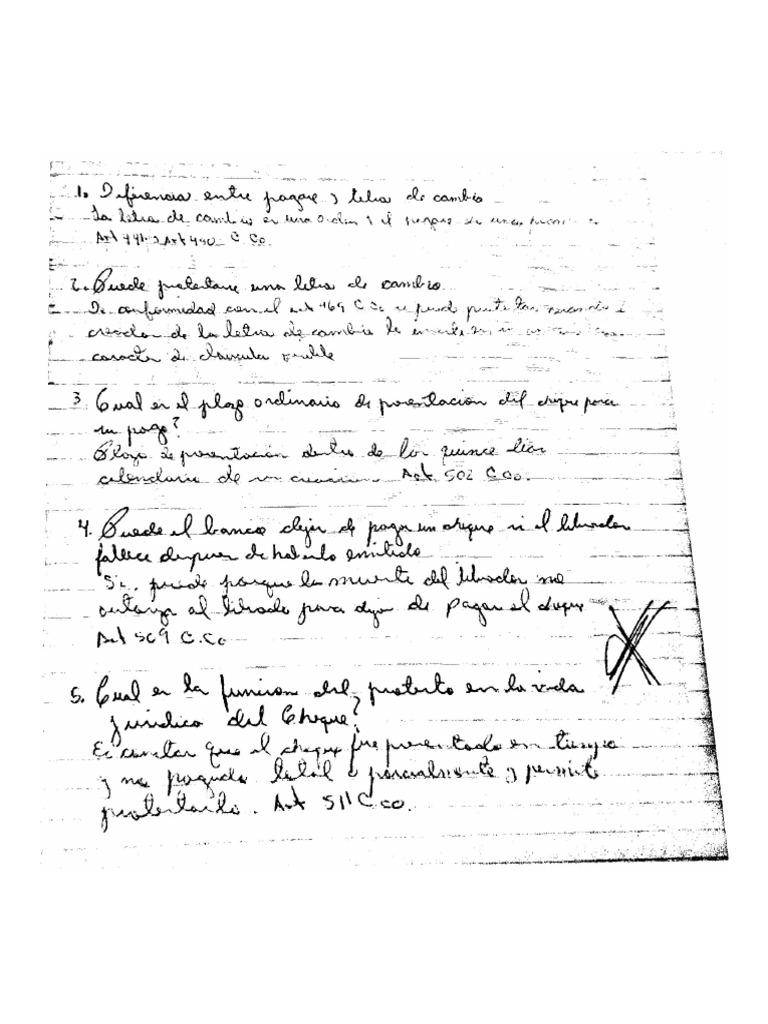 1. Diferencia entre pagare y letra de cambio
La letra de cambio es una orden y el pagare es una
Art 441 Art 490 C.Co.
2. Puede protestarse una letra de cambio
De conformidad con el art 469 C Co se puede protestar
creador de la letra de cambio le inserte
caracter de clausula
3. Cual es el plazo ordinario de presentacion del cheque para
su pago?
Plazo de presentacion dentro de los quince dias
calendario de su creacion. Art. 502 C.Co.
4. Puede el banco dejar de pagar un cheque si el librador
fallece despues de haberlo emitido
Si, puede porque la muerte del librador no
autoriza al librado para dejar de pagar el cheque
Art 509 C.Co
5. Cual es la funcion del protesto en la vida
juridica del Cheque?
Es constar que el cheque fue presentado en tiempo
y no pagado total o parcialmente y permite
protestarlo. Art 511 C co.